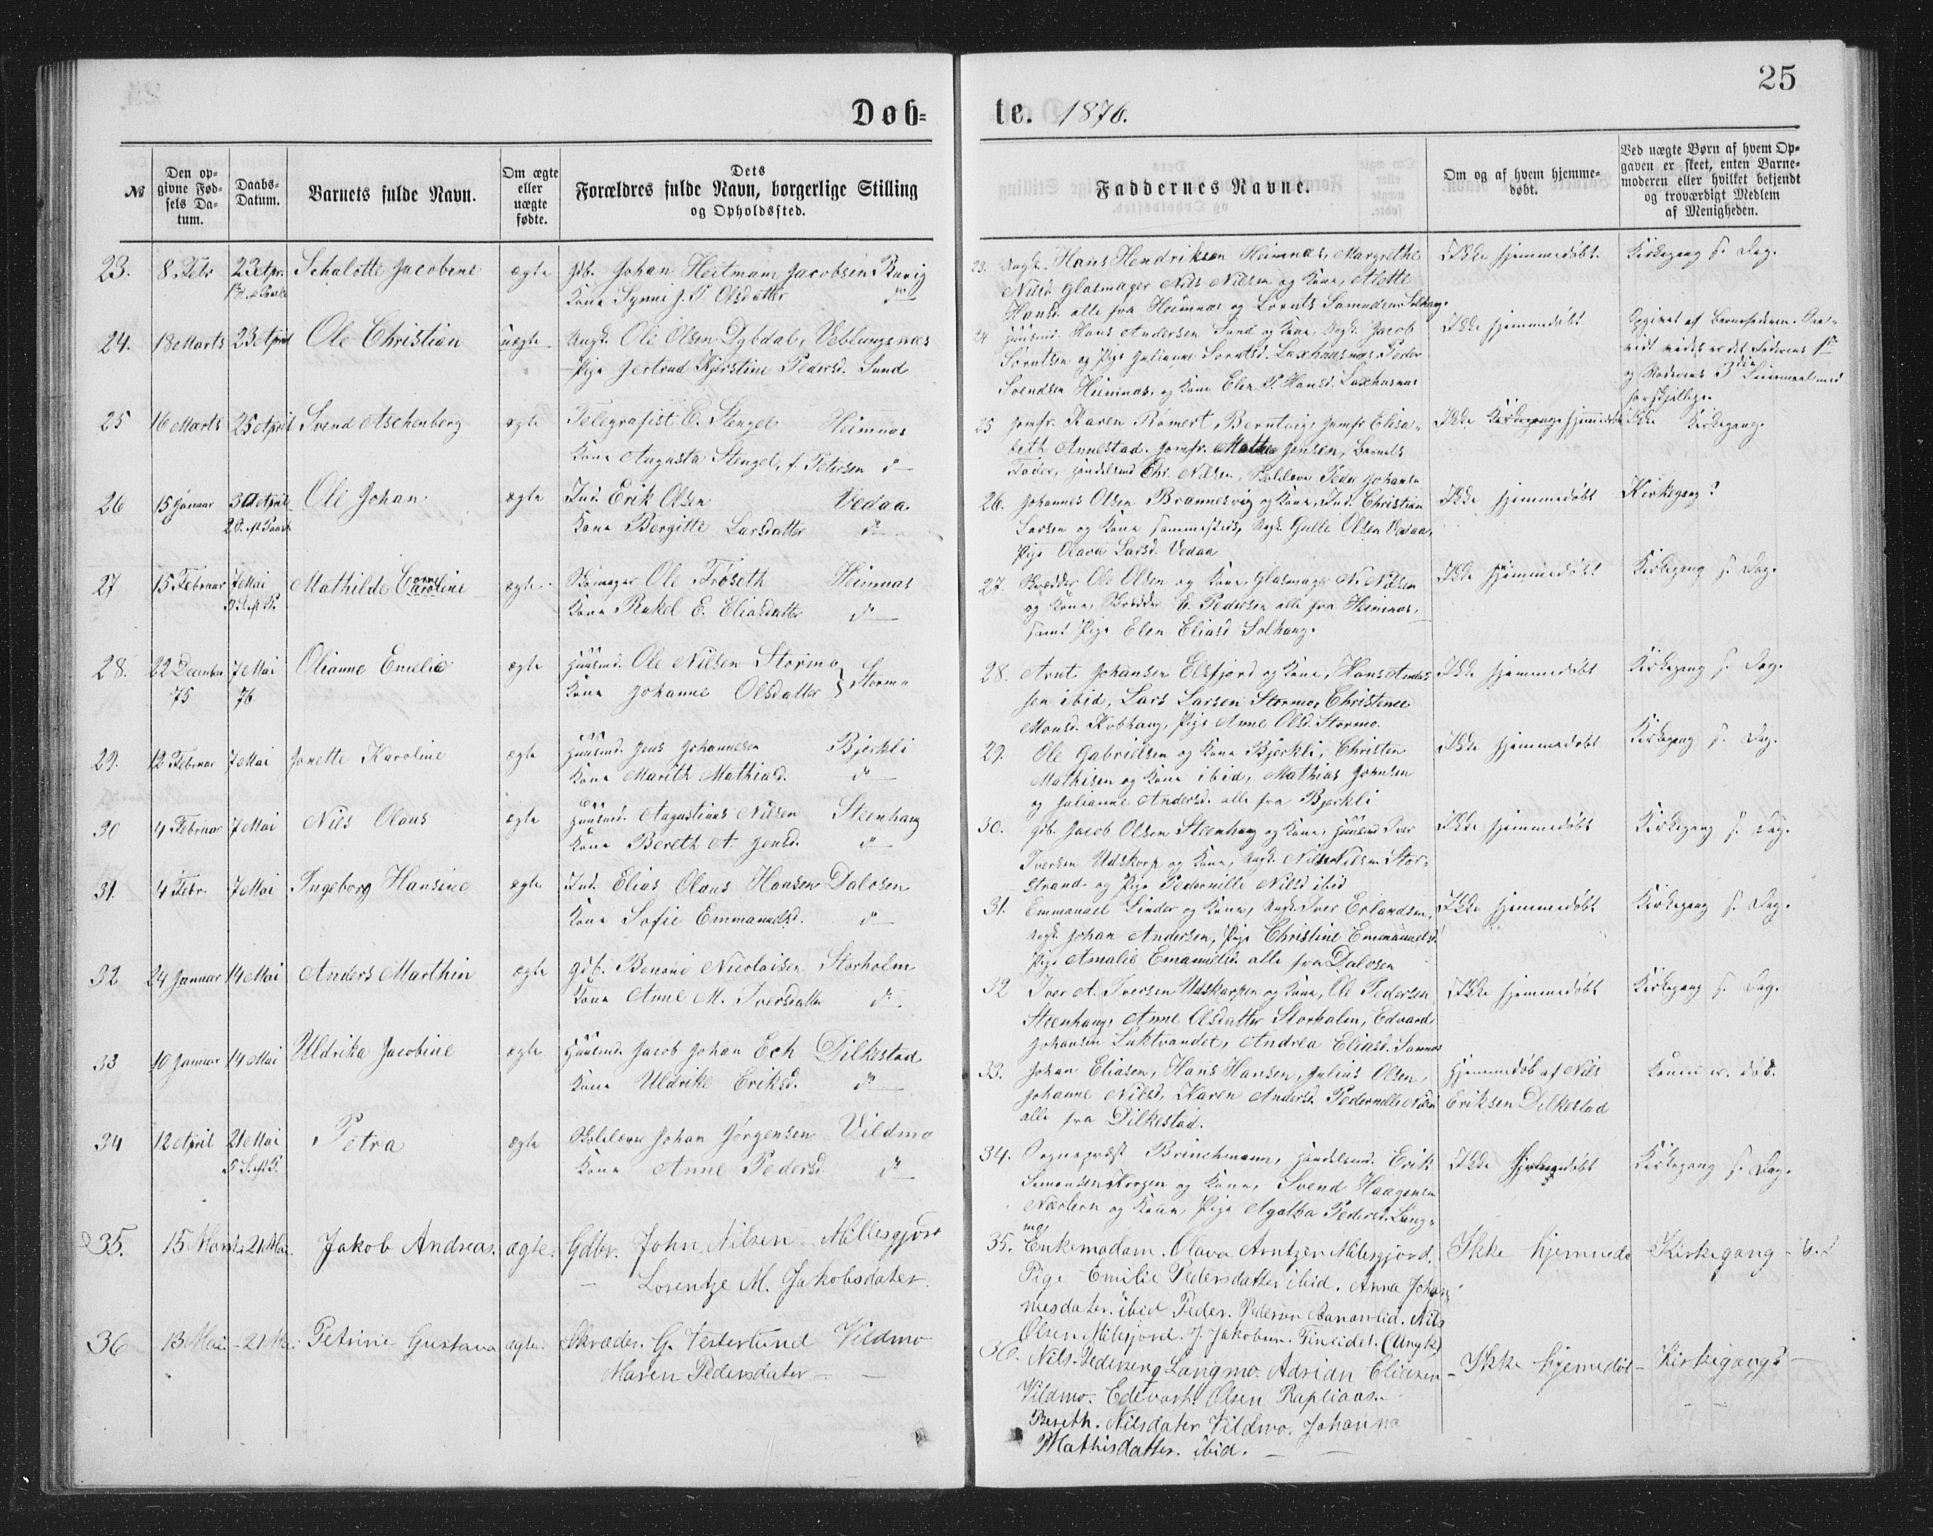 25
Døb=
te. 1876.
№
Den op-
givne Fød-
sels Da-
tum.
Daabs-
Datum.
Barnets fulde Navn.
Om ægte
eller
uægte
fødte.
Dets
Forældres fulde Navn, borgerlige Stilling
og Opholdssted.
Faddernes Navne.
Om og af hvem hjemme-
døbt.
Ved uægte Børn af hvem Op-
gaven er skeet, enten Barne-
moderen eller hvilket bekjendt
og troværdigt Medlem
af Menigheden.
23. 8 Febr 23 Apr. Schalotte Jacobine ægte gdb. Johan Heitmann Jacobsen Ravig
Kone Synni J. P. Olsdatter do
23. Ungk. Hans Hendriksen Heimnæs, Margrethe
Nilsd. Glasmager Nils Nilsen og Kone, Alette
Hansd. alle fra Heimnæs og Lornts Samuelsen Solhaug.
Ikke hjemmedøbt. Kirkegang s. Dag.
24. 18 Marts 23 April Ole Christian uægte Ungk. Ole Olsen Dybdal, Veblungsnæs
Pige Gertrud Kjerstine Pedersd. Sund
24 Huusmd. Hans Andersen Sund og Kone, Ungk. Jacob
Lorntsen og Pige Julianne Lorntsd. Laxhusnæs, Peder
Svendsen Heimnæs og Kone Elen P. Hansd. Laxhusnæs
Ikke hjemmedøbt
Opgivet af Barnefaderen.
vidt vides er det Faderens 1ste
og Moderens Leiermaal med
forskjellige.
25 16 Marts 25 April Svend Aschenberg ægte Telegrafist E. Stengel Heimnæs
Kone Augusta Stengel, f. Petersen do
25 Jomfr. Karen Rømert, Berntvig, Jomfr Elisa-
beth Annestad. Jomfr. Mathea Jensen, Barnets
Fader, Handelsmd Chr. Nilsen, Peder Johansen
Ikke hjemmedøbt Ikke Kirkegang.
26 15 Januar 30 April Ole Johan ægte Ind. Erik Olsen Vedaa
2 S. eft Paaske Kone Bergitte Larsdatter do
26. Johannes Olsen Brannesvig og Kone, Ind. Christian
Larsen og Kone sammesteds, Ungk. Gulle Olsen Vedaa,
Pige Olava Larsd. Vedaa
Ikke hjemmedøbt Kirkegang?
27 15 Februar 7 Mai Mathilde Caroline ægte Skomager Ole Frøseth Heimnæs
Kone Rakel E. Eliasdatter do
27. Skrædder Ole Olsen og Kone, Glasmager N. Nilsen
og Kone, Skrædder E. Pedersen alle fra Heimnæs,
samt Pige Elen Eliasd Solhaug.
Ikke hjemmedøbt Kirkegang s. Dag.
28. 22 December 7 Mai Olianne Emelie ægte Huusmd. Ole Nilsen Stormo
75 76 Kone Johanne Olsdatter Stormo
28. Arnt Johansen Elsfjord og Kone, Hans Ander-
sen ibid, Lars Larsen Stormo, Christense
Monsd. Kobhaug, Pige Anne Olsd. Stormo.
Ikke hjemmedøbt Kirkegang s. Dag.
29. 12 Februar 7 Mai Jonette Karoline ægte Huusmd. Jens Johannesen Bjerkli
Kone Marith Mathiasd. do
29. Ole Gabrielsen og Kone Bjerkli, Christen
Mathisen og Kone ibid, Mathias Johnsen
og Julianne Andersd. alle fra Bjerkli
Ikke hjemmedøbt Kirkegang s. Dag.
30 4 Februar 7 Mai Nils Olaus ægte Huusmd. Augustinus Nilsen Steenhaug
Kone Bereth A. Jensd. do
30. gdb. Jacob Olsen Steenhaug og Kone, Huusmd Iver
Iversen Udskarp og Kone, Ungk. Nils Nilsen Stor-
strand og Pige Pedernille Nilsd ibid
Ikke hjemmedøbt Kirkegang s. Dag.
31. 4 Febr. 7 Mai Ingeborg Hansine ægte Ind. Elias Olaus Hansen Dalosen
Kone Sofie Emmanuelsd. do
31. Emmanuel Linder og Kone, Ungk. Iver Erlandsen,
Ungk. Johan Andersen, Pige Christine Emmanuelsd.
Pige Amalie Emanuelsd. alle fra Dalosen
Ikke hjemmedøbt Kirkegang s. Dag.
32 24 Januar 14 Mai Anders Marthin ægte gdb. Benoni Nicolaisen Storholm
Kone Anne M. Iversdatter do
32 Iver A. Iversen Udskarpen og Kone, Ole Pedersen
Steenhaug, Anne Olsdatter Storholm, Edvard
Johansen Luktvandet, Andrea Eliasd.
Ikke hjemmedøbt Kirkegang s. Dag.
33 10 Januar 14 Mai Uldrika Jacobine ægte Huusmd. Jacob Johan Ech Dilkestad
Kone Uldrike Eriksd. do
33. Johan Eliasen, Hans Hansen, Julius Olsen,
Johanne Nilsd, Karen Andersd. Pedernelle Nilsd
alle fra Dilkestad.
Hjemmedøb af Nils
Eriksen Dilkestad
Konen er død.
34 12 April 21 Mai Petra ægte Skolelærer Johan Jørgensen Vildmo
Kone Anne Pedersd do
34. Sognepræst Brinchmann, Handelsmd. Erik
Simonsen og Kone, Svend Haagensen
Næstern og Kone, Pige Agatha Pedersd. Lang-
mo,
Ikke hjemmedøbt Kirkegang s. Dag.
35. 15 Marts 21 Mai Jakob Andreas. ægte. Gdbr. John Nilsen Millesgjord
Lorentze M. Jakobsdater.
35. Enkemadam. Olava Arntzen Milesgjord.
Pige Emilie Pedersdatter ibid. Anna Johan
nesdater. ibid Peder. Pedersen Nils
Olsen Milesjord. J. Jakobsen. (Ungk)
Ikke hjemmedø Kirkegang
36 13 Mai 21 Mai Petrine Gustava ægte. Skræder. G. Vesterlund Vildmo
Maren Pedersdater
36. Nils. Pedersen Langmo. Adrian Eliasen
Vildmo. Edevart. Olsen Rapliaas.
Bereth. Nilsdater Vildmo. Johanna
Mathisdatter. ibid.
Ikke hjemedøbt Kirkigang?